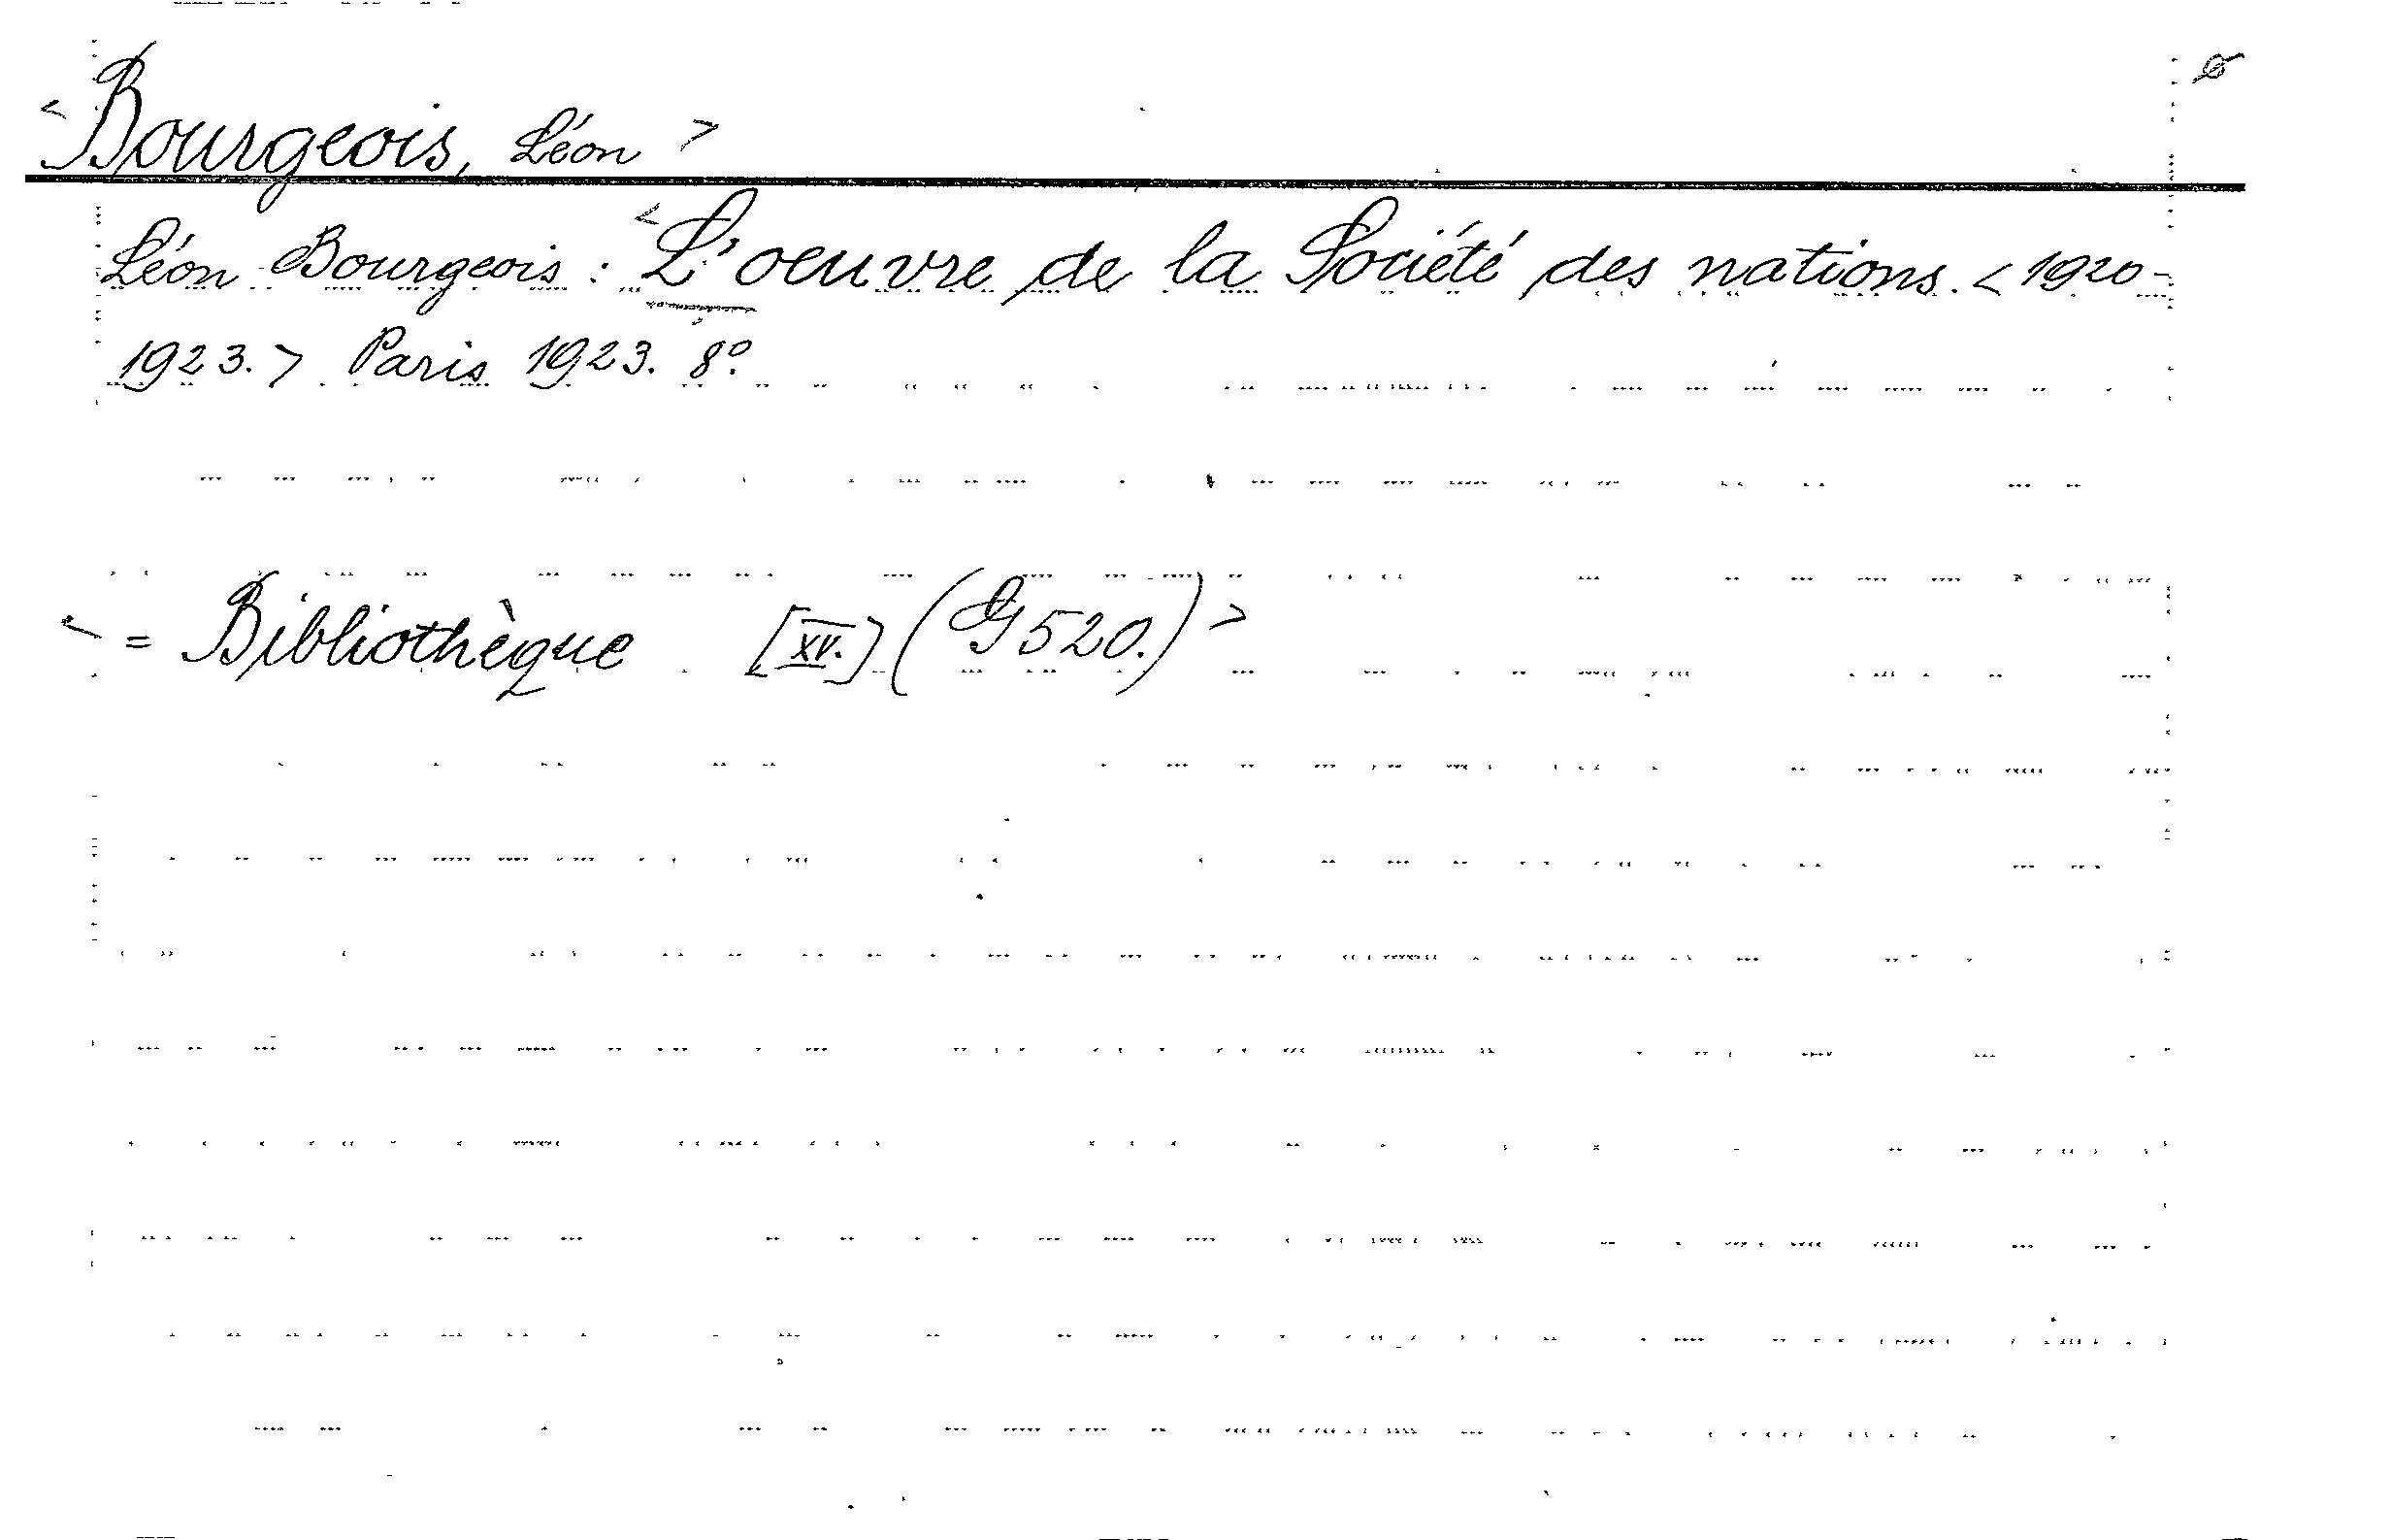 <Bourgeois, Léon>
Léon Bourgeois: <L'oeuvre de la Société des nations. <1920-
1923.> Paris 1923. 8°.
<= Bibliothèque [XV.] (G 520.)>